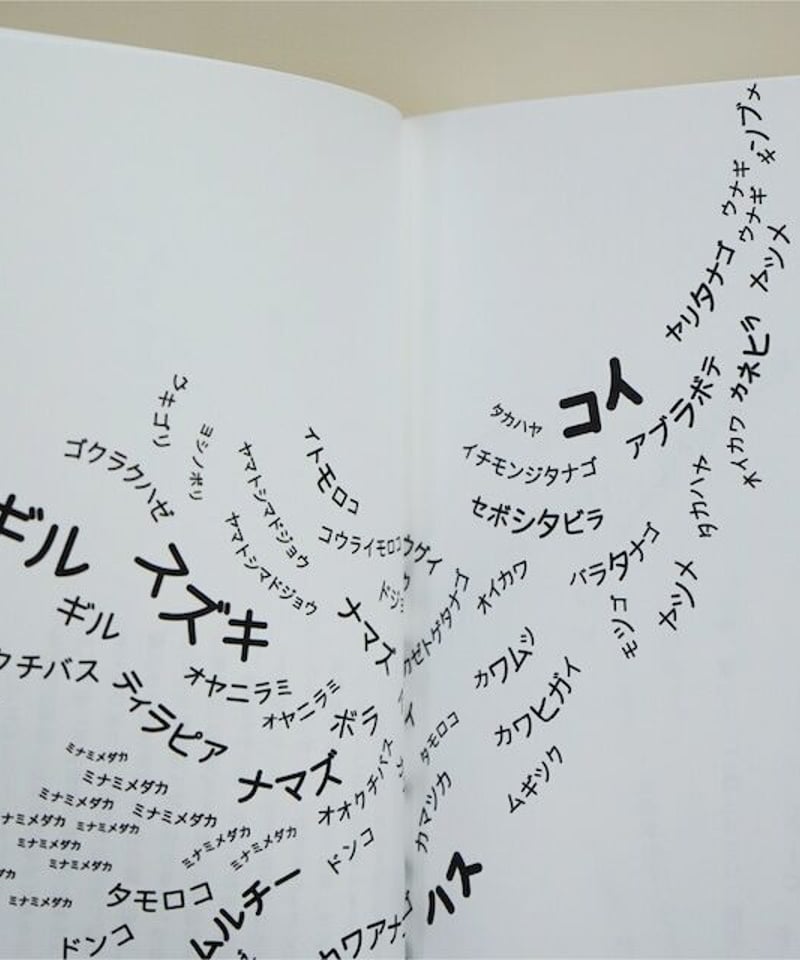 ウキゴリ
ヨシノボリ
ゴクラクハゼ
ヤマトシマドジョウ
ヤマトシマドジョウ
イトモロコ
コウライモロコ
ウグイ
ギル
スズキ
ギル
ナマズ
クチバス
オヤニラミ
オヤニラミ
ティラピア
ボラ
ナマズ
オオクチバス
ミナミメダカ
ミナミメダカ
ミナミメダカ
ミナミメダカ
ミナミメダカ
ミナミメダカ
ミナミメダカ
ミナミメダカ
ミナミメダカ
ミナミメダカ
ドンコ
タモロコ
ムルチー
ドンコ
カワアナゴ
ウナギ
ウナギ
ヤツメ
ヤリタナゴ
カネヒラ
コイ
タカハヤ
アブラボテ
イチモンジタナゴ
オイカワ
タカハヤ
セボシタビラ
バラタナゴ
オイカワ
カゼトゲタナゴ
ヤツメ
モツゴ
カワムツ
カワヒガイ
タモロコ
ムギツク
カマツカ
ハス